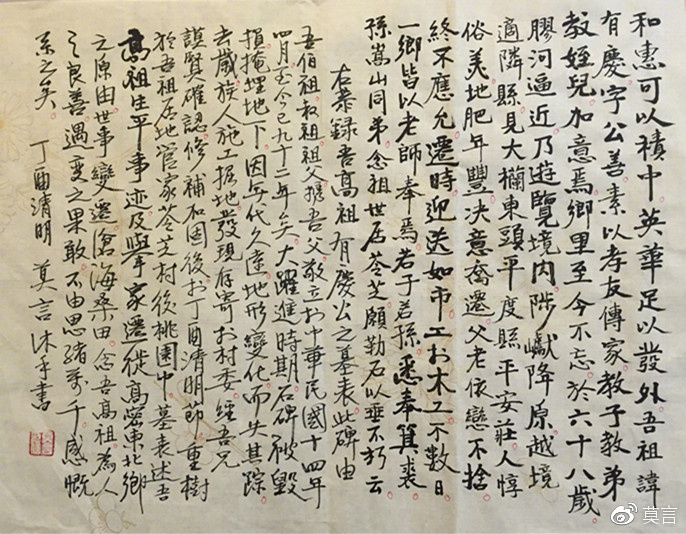 和惠可以積中英華足以發外吾祖諱
有慶字公善素以孝友傳家教子教弟
教姪兒加意焉鄉里至今不忘於六十八歲
膠河逼近乃遊覽境內陟巘降原越境
適隣縣見大欄東頭平度縣平安莊人惇
俗美地肥年豐決意喬遷父老依戀不捨
終不應允遷時迎送如市工於木工不數日
一鄉皆以老師奉焉若子若孫悉奉箕裘
孫嵩山同弟念祖世居苓芝願勒石以垂不朽云
右恭録吾高祖有慶公之墓表此碑由
吾伯祖叔祖祖父携吾父敬立於中華民國十四年
四月至今已九十二年矣大躍進時期石碑被毀
損掩埋地下因年代久遠地形變化而失其踪
去歲族人施工掘地發現存寄於村委經吾兄
謨賢確認修補加固後於丁酉清明節重樹
於吾祖居地管家苓芝村後桃園中墓表述吾
高祖生平事迹及舉家遷徙高密東北鄉
之原由世事變遷滄海桑田念吾高祖為人
之良善遇變之果敢不由思緒萬千感慨
系之矣 丁酉清明 莫言沐手書
莫言